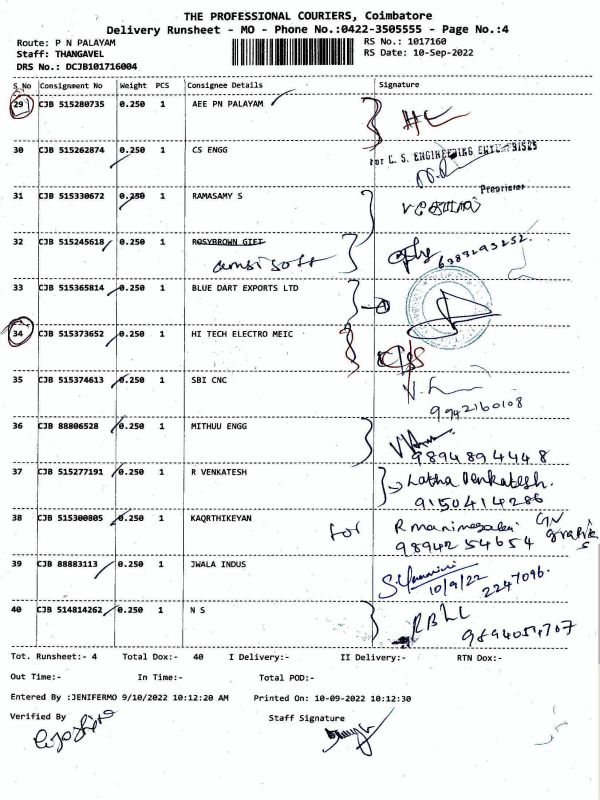 THE PROFESSIONAL COURIERS, Coimbatore
Delivery Runsheet - MO - Phone No.:0422-3505555 - Page No.:4
Route: P N PALAYAM
Staff: THANGAVEL
DRS No.: DCJB101716004
RS No.: 1017160
RS Date: 10-Sep-2022
S No Consignment No Weight PCS Consignee Details Signature
29 CJB 515280735 0.250 1 AEE PN PALAYAM
30 CJB 515262874 0.250 1 CS ENGG
For C. S. ENGINEERING ENTERPRISES
Proprietor
31 CJB 515330672 0.250 1 RAMASAMY S
32 CJB 515245618 0.250 1 ROSYBROWN GIFT
6383293252.
33 CJB 515365814 0.250 1 BLUE DART EXPORTS LTD
34 CJB 515373652 0.250 1 HI TECH ELECTRO MEIC
35 CJB 515374613 0.250 1 SBI CNC
9942160108
36 CJB 88806528 0.250 1 MITHUU ENGG
9894894448
37 CJB 515277191 0.250 1 R VENKATESH Latha Venkatesh.
9150414286
38 CJB 515300805 0.250 1 KAQRTHIKEYAN for R manimegalai
9894254654
39 CJB 88883113 0.250 1 JWALA INDUS
10/9/22 2247096.
40 CJB 514814262 0.250 1 N S
9894051707
Tot. Runsheet:- 4 Total Dox:- 40 I Delivery:- II Delivery:- RTN Dox:-
Out Time:- In Time:- Total POD:-
Entered By :JENIFERMO 9/10/2022 10:12:20 AM Printed On: 10-09-2022 10:12:30
Verified By Staff Signature